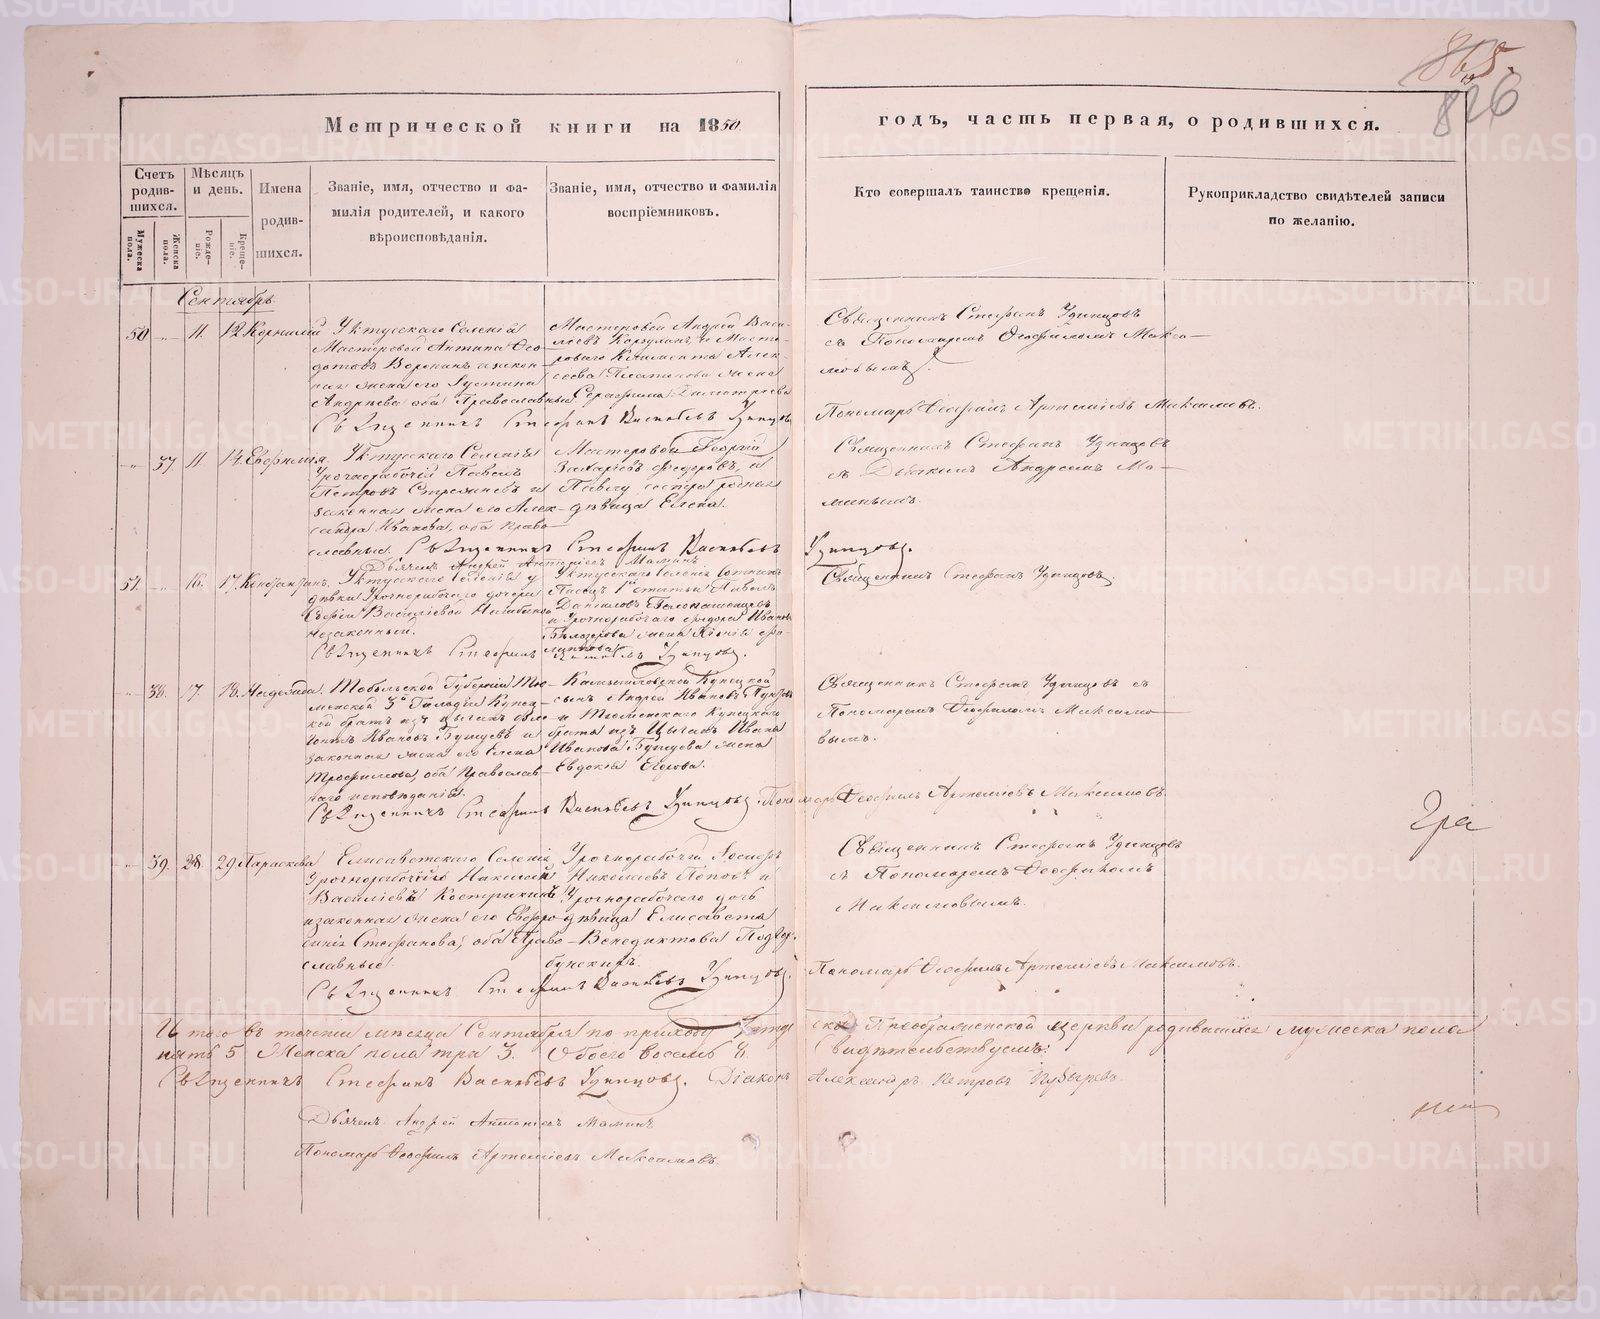 865.
826
Метрической книги на 1850
годъ, часть первая, о родившихся.
Счетъ родив-шихся.
Мужеска пола.
Женска пола.
Мѣсяцъ и день.
Рожде-ніе.
Креще-ніе.
Имена родив-шихся.
Званіе, имя, отчество и фа-
милія родителей, и какого
вѣроисповѣданія.
Званіе, имя, отчество и фамилія
воспріемниковъ.
Кто совершалъ таинство крещенія.
Рукоприкладство свидѣтелей записи
по желанію.
Сентябрь
50 11. 12. Корнилий
Уктусскаго Селенія
Мастеровой Антипа Ѳео-
дотовъ Воронинъ и закон-
ная жена его Іустина
Андреева оба Православные
Мастеровой Андрей Васи-
льевъ и Масте-
роваго Климента Алек-
сѣева жена
Серафима
Священникъ Стефанъ Удинцовъ
съ Пономаремъ Ѳеофиломъ Макси-
мовымъ.
Священникъ Стефанъ Васильевъ Удинцовъ
Пономарь Ѳеофилъ Артеміевъ Максимовъ.
37 11 14. Евфимія.
Уктусскаго Селенія
Урочнорабочій Павелъ
Петровъ и
законная жена его Алек-
сандра Иванова, оба Право-
славные.
Мастеровой Георгій
Захаріевъ Федоровъ, и
Павлу сестра родная
дѣвица Елена.
Священникъ Стефанъ Удинцовъ
съ Дьячкомъ Андреемъ Ма-
минымъ.
Священникъ Стефанъ Васильевъ Удинцовъ.
Дьячекъ Андрей Антоніевъ Маминъ
51. 16. 17.
Уктусскаго Селенія у
дѣвки Урочнорабочаго дочери
Софіи Васильевой
незаконный.
Уктусскаго Селенія
1й статьи Павелъ
Даниловъ
и Урочнорабочаго Федора Иванова
жена Ксенія
Священникъ Стефанъ Удинцовъ.
Священникъ Стефанъ Васильевъ Удинцовъ.
38. 17. 18. Надежда.
Тобольской Губерніи Тю-
менской 3й Гильдіи Купец-
кой братъ изъ цыганъ
Ивановъ и
законная жена его Елена
Трофимова, оба Православ-
наго исповѣданія.
Камышловской Купецкой
сынъ Андрей Ивановъ
и Тюменскаго Купецкаго
брата изъ Цыганъ Ивана
Иванова жена
Евдокія Егорова.
Священникъ Стефанъ Удинцовъ съ
Пономаремъ Ѳеофиломъ Максимо-
вымъ.
Священникъ Стефанъ Васильевъ Удинцовъ. Пономарь Ѳеофилъ Артеміевъ Максимовъ.
39. 28. 29. Параскева
Елисаветскаго Селенія
Урочнорабочій Николай
Васильевъ Кострикинъ
и законная жена его Евге-
нія Стефанова, оба Право-
славные
Урочнорабочій Іосифъ
Николаевъ Поповъ и
Урочнорабочаго дочь
дѣвица Елисавета
Венедиктова
Священникъ Стефанъ Удинцовъ
съ Пономаремъ Ѳеофиломъ
Максимовымъ.
Священникъ Стефанъ Васильевъ Удинцовъ.
Пономарь Ѳеофилъ Артеміевъ Максимовъ.
Итого въ теченіи мѣсяца Сентября по приходу Уктус-ской Преображенской церкви родившихся мужеска пола
пять 5 Женска пола три 3. Обоего восемь 8. Свидѣтельствуемъ:
Священникъ Стефанъ Васильевъ Удинцовъ. Діаконъ Александръ Петровъ Пузыревъ.
Дьячекъ Андрей Антоніевъ Маминъ
Пономарь Ѳеофилъ Артеміевъ Максимовъ.
METRIKI.GASO-URAL.RU